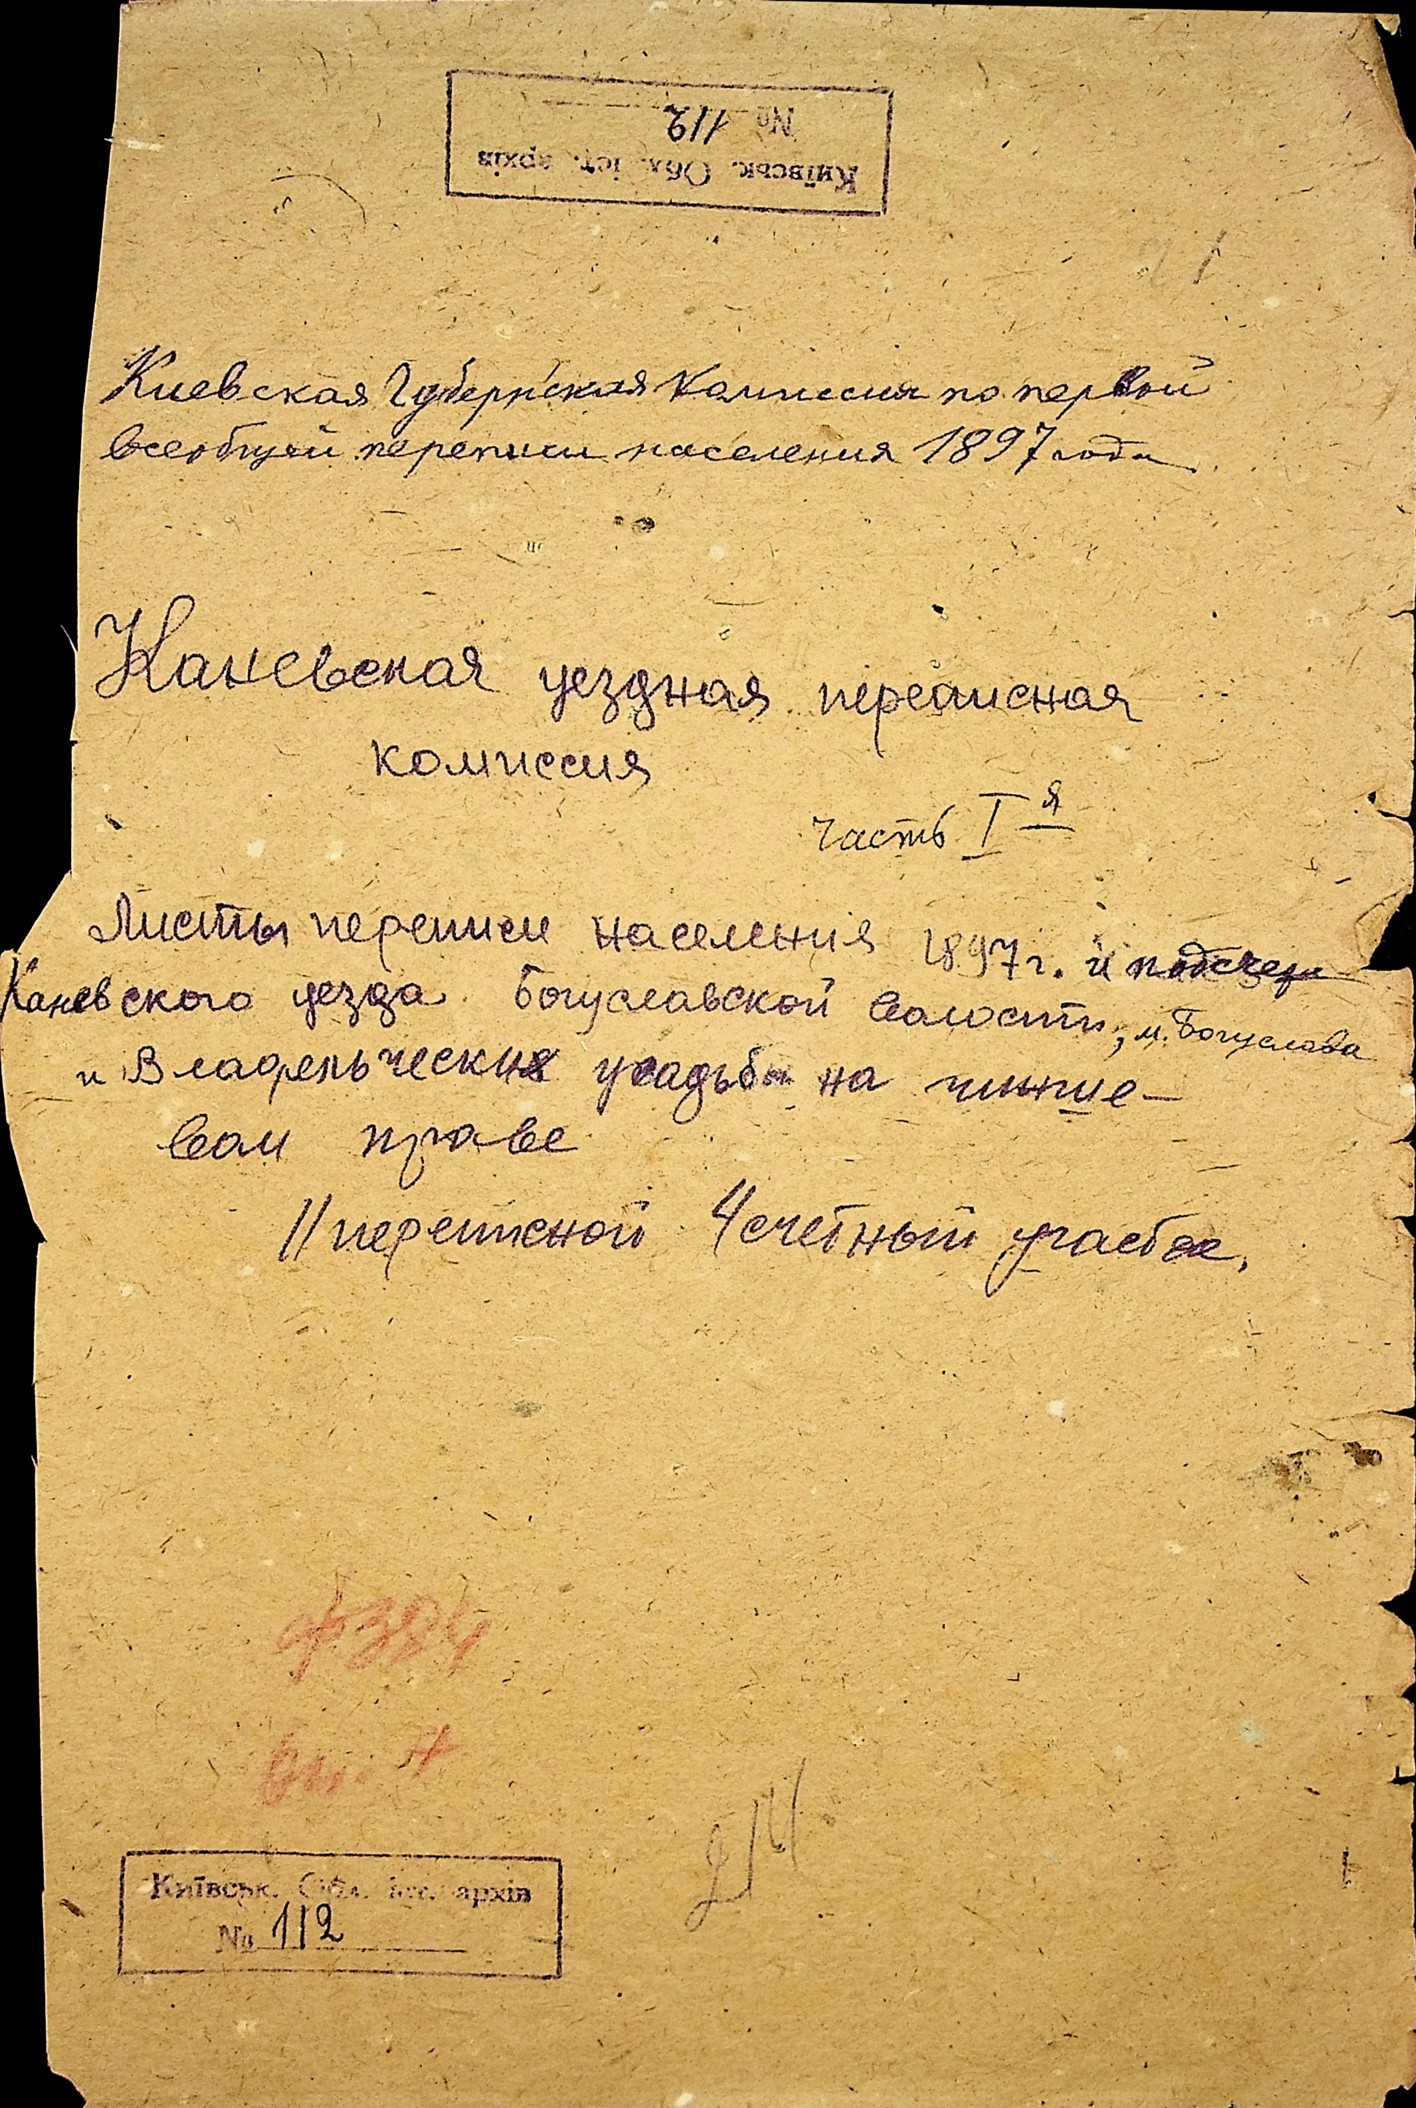 Київськ. Обл. іст. архів
№ 112
Киевская Губернская Комиссия по первой
всеобщей переписи населения 1897 года
Каневская уездная переписная
комиссия
часть I я
Листы переписи населения 1897 г. и
Каневского уезда Богуславской волости, м. Богуслава
и Владельческих усадьбы на чинше-
вом праве
11 переписной 4 счетный участок.
ф 384
оп. 7
Київськ. Обл. іст. архів
№ 112